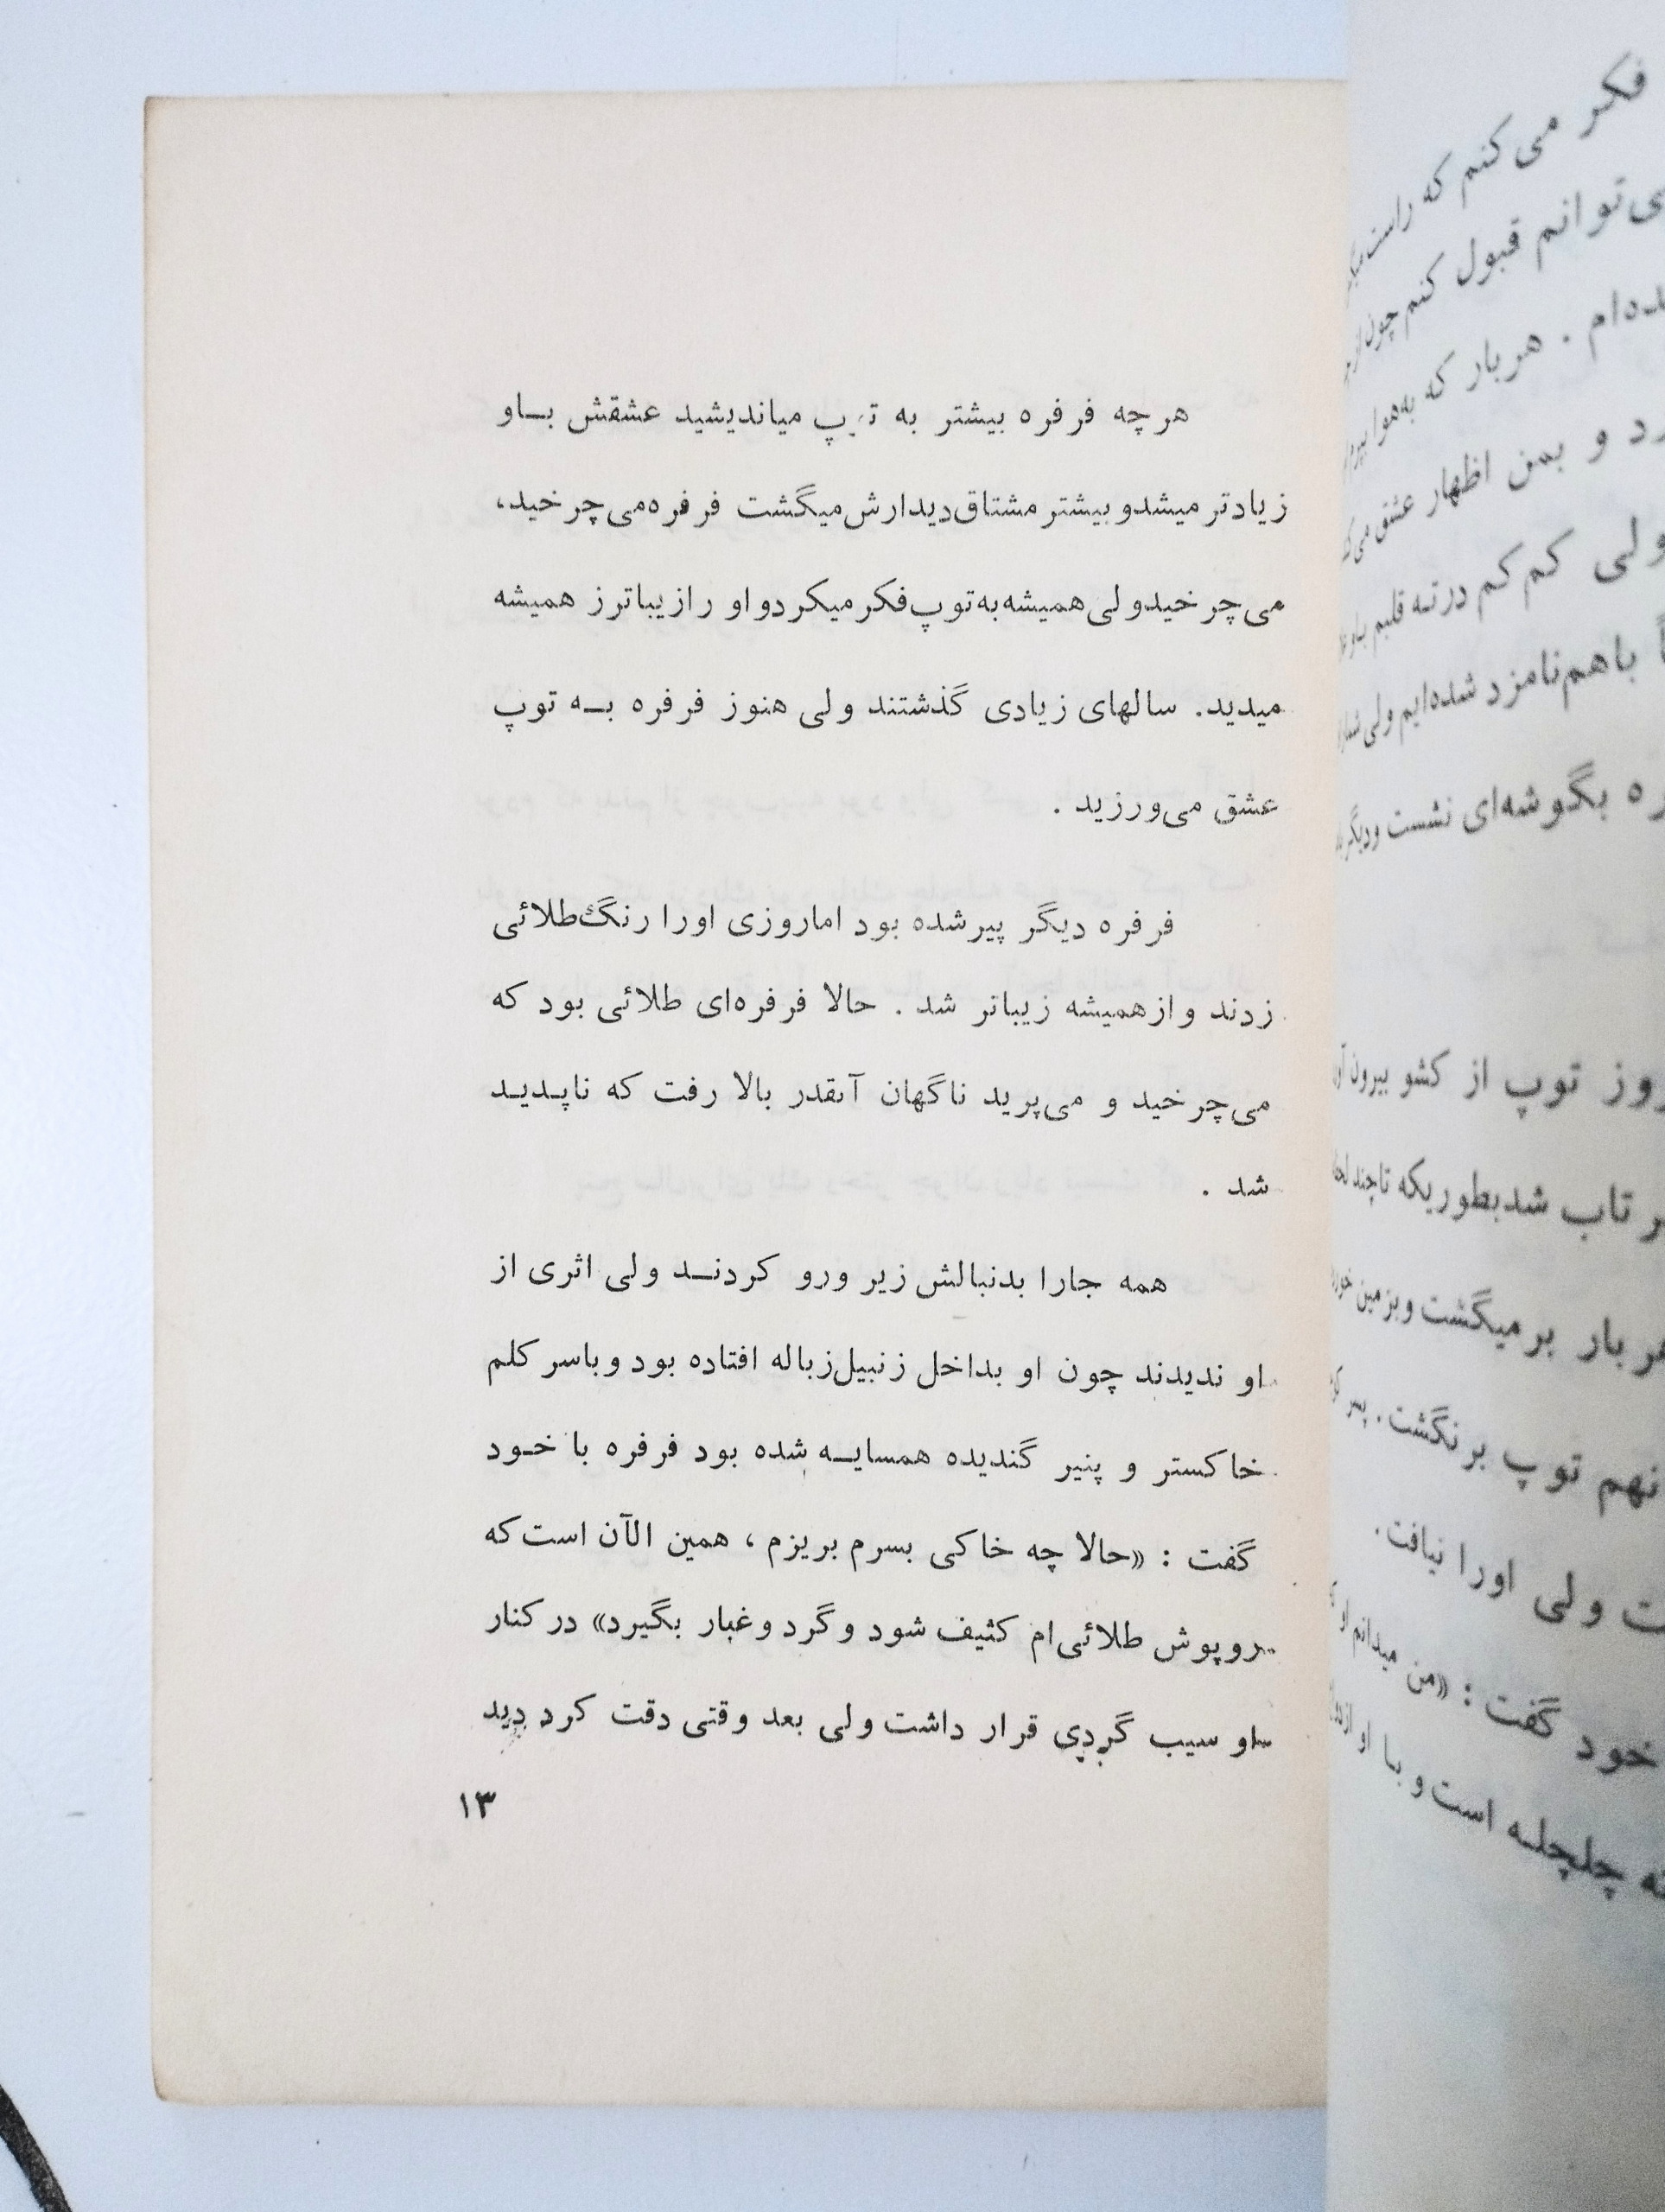 فکر می‌کنم که راست
ی‌توانم قبول کنم چون از
ده‌ام . هربار که به‌هوا
رد و بمن اظهار عشق می‌ک
ولی کم‌کم درته قلبم
باهم‌نامزد شده‌ایم ولی
ره بگوشه‌ای نشست ودیگر
روز توپ از کشو بیرون
ر تاب شدبطوریکه تاچند
هر بار برمیگشت وبزمین
نهم توپ برنگشت . پسر
ت ولی اورا نیافت .
خود گفت : «من میدانم او
ته چلچله است و با او
هرچه فرفره بیشتر به توپ میاندیشید عشقش باو
زیادتر میشدو بیشتر مشتاق‌دیدارش‌میگشت فرفره‌می‌چرخید،
می‌چرخیدولی‌همیشه‌به‌توپ‌فکر‌میکردواو رازیباترز همیشه
میدید. سالهای زیادی گذشتند ولی هنوز فرفره به توپ
عشق می‌ورزید .
فرفره دیگر پیرشده بود اماروزی اورا رنگ‌طلائی
زدند وازهمیشه زیباتر شد . حالا فرفره‌ای طلائی بود که
می‌چرخید و می‌پرید ناگهان آنقدر بالا رفت که ناپدید
شد .
همه جارا بدنبالش زیر ورو کردند ولی اثری از
او ندیدند چون او بداخل زنبیل‌زباله افتاده بود وباسر کلم
خاکستر و پنیر گندیده همسایه شده بود فرفره با خود
گفت : «حالا چه خاکی بسرم بریزم ، همین الآن است‌که
روپوش طلائی‌ام کثیف شود وگرد وغبار بگیرد» درکنار
او سیب گردی قرار داشت ولی بعد وقتی دقت کرد دید
۱۳